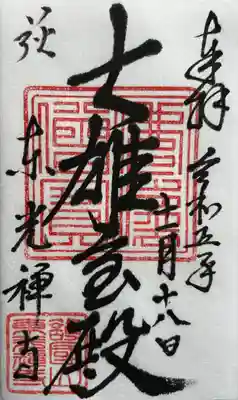 奉拝 令和五年
十一月十八日
大雄宝殿
萩 東光禅寺